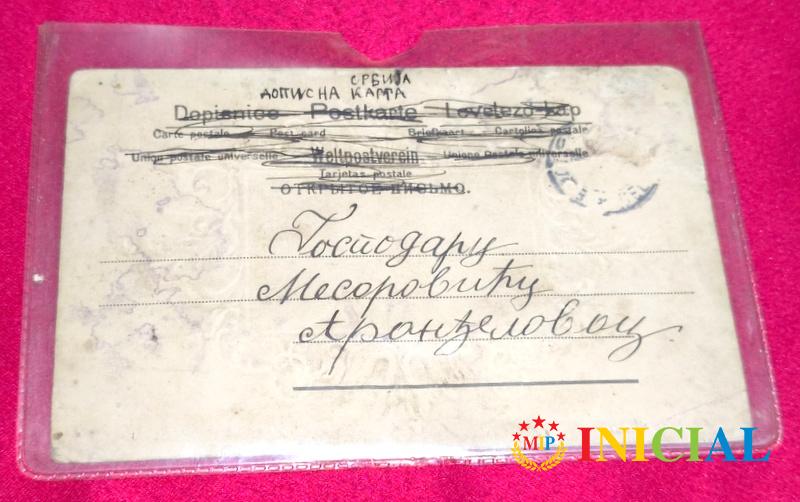 СРБИЈА
ДОПИСНА КАРТА
Dopisnice Postkarte Levelező-Lap
Carte postale Post card Briefkaart Cartolina postale
Union postale universelle Weltpostverein Unione Postale universelle
Tarjetas postale
ОТКРЫТОЕ ПИСЬМО.
Господару
Месоровићу
Аранђеловац.
MIP INICIAL